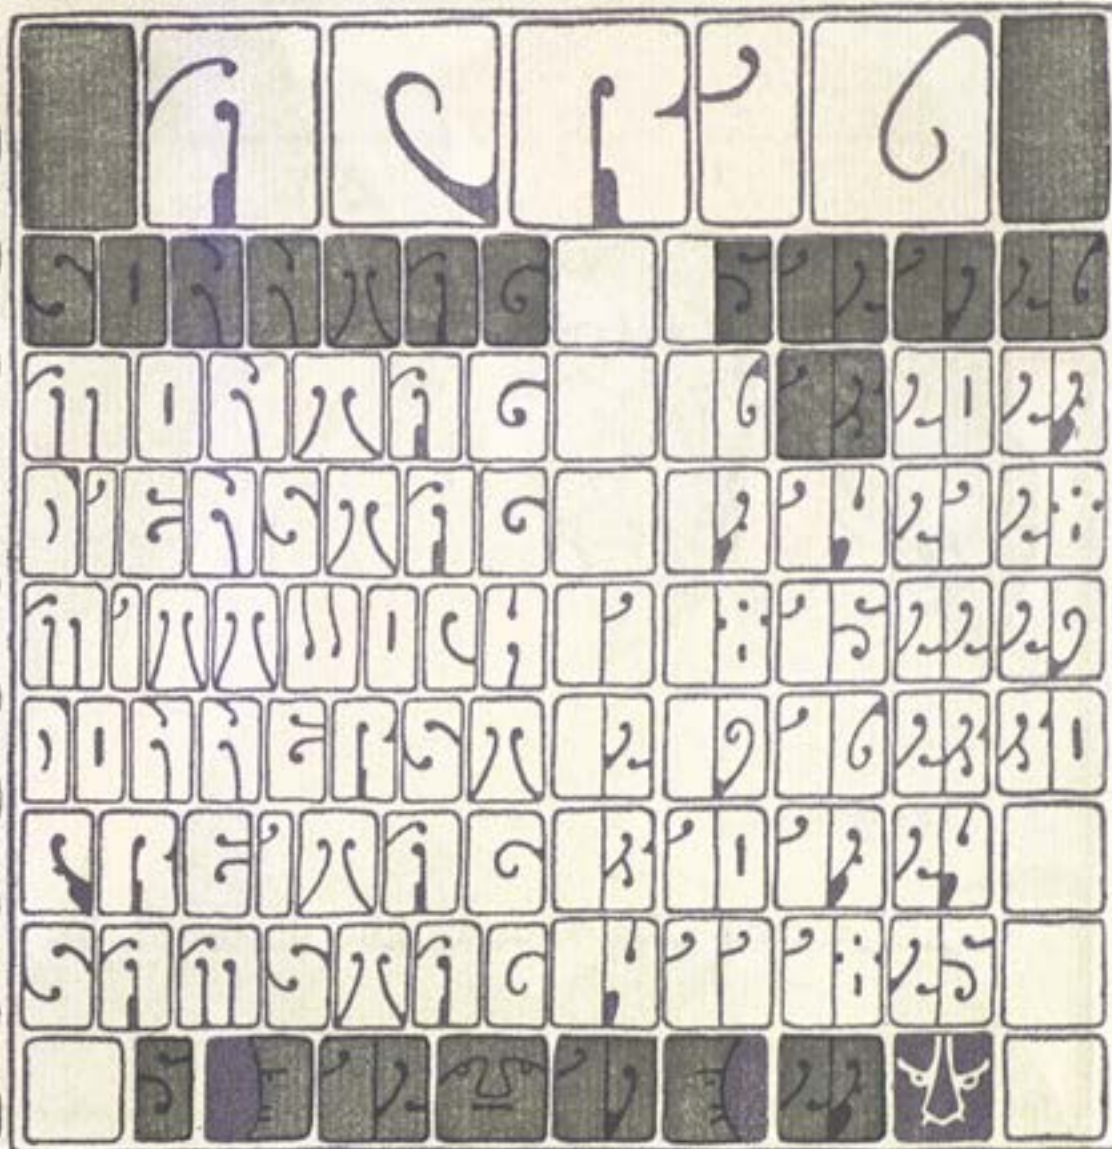 APRIL
SONNTAG 5 12 19 26
MONTAG 6 13 20 27
DIENSTAG 7 14 21 28
MITTWOCH 1 8 15 22 29
DONNERST 2 9 16 23 30
FREITAG 3 10 17 24
SAMSTAG 4 11 18 25
5 12 19 27